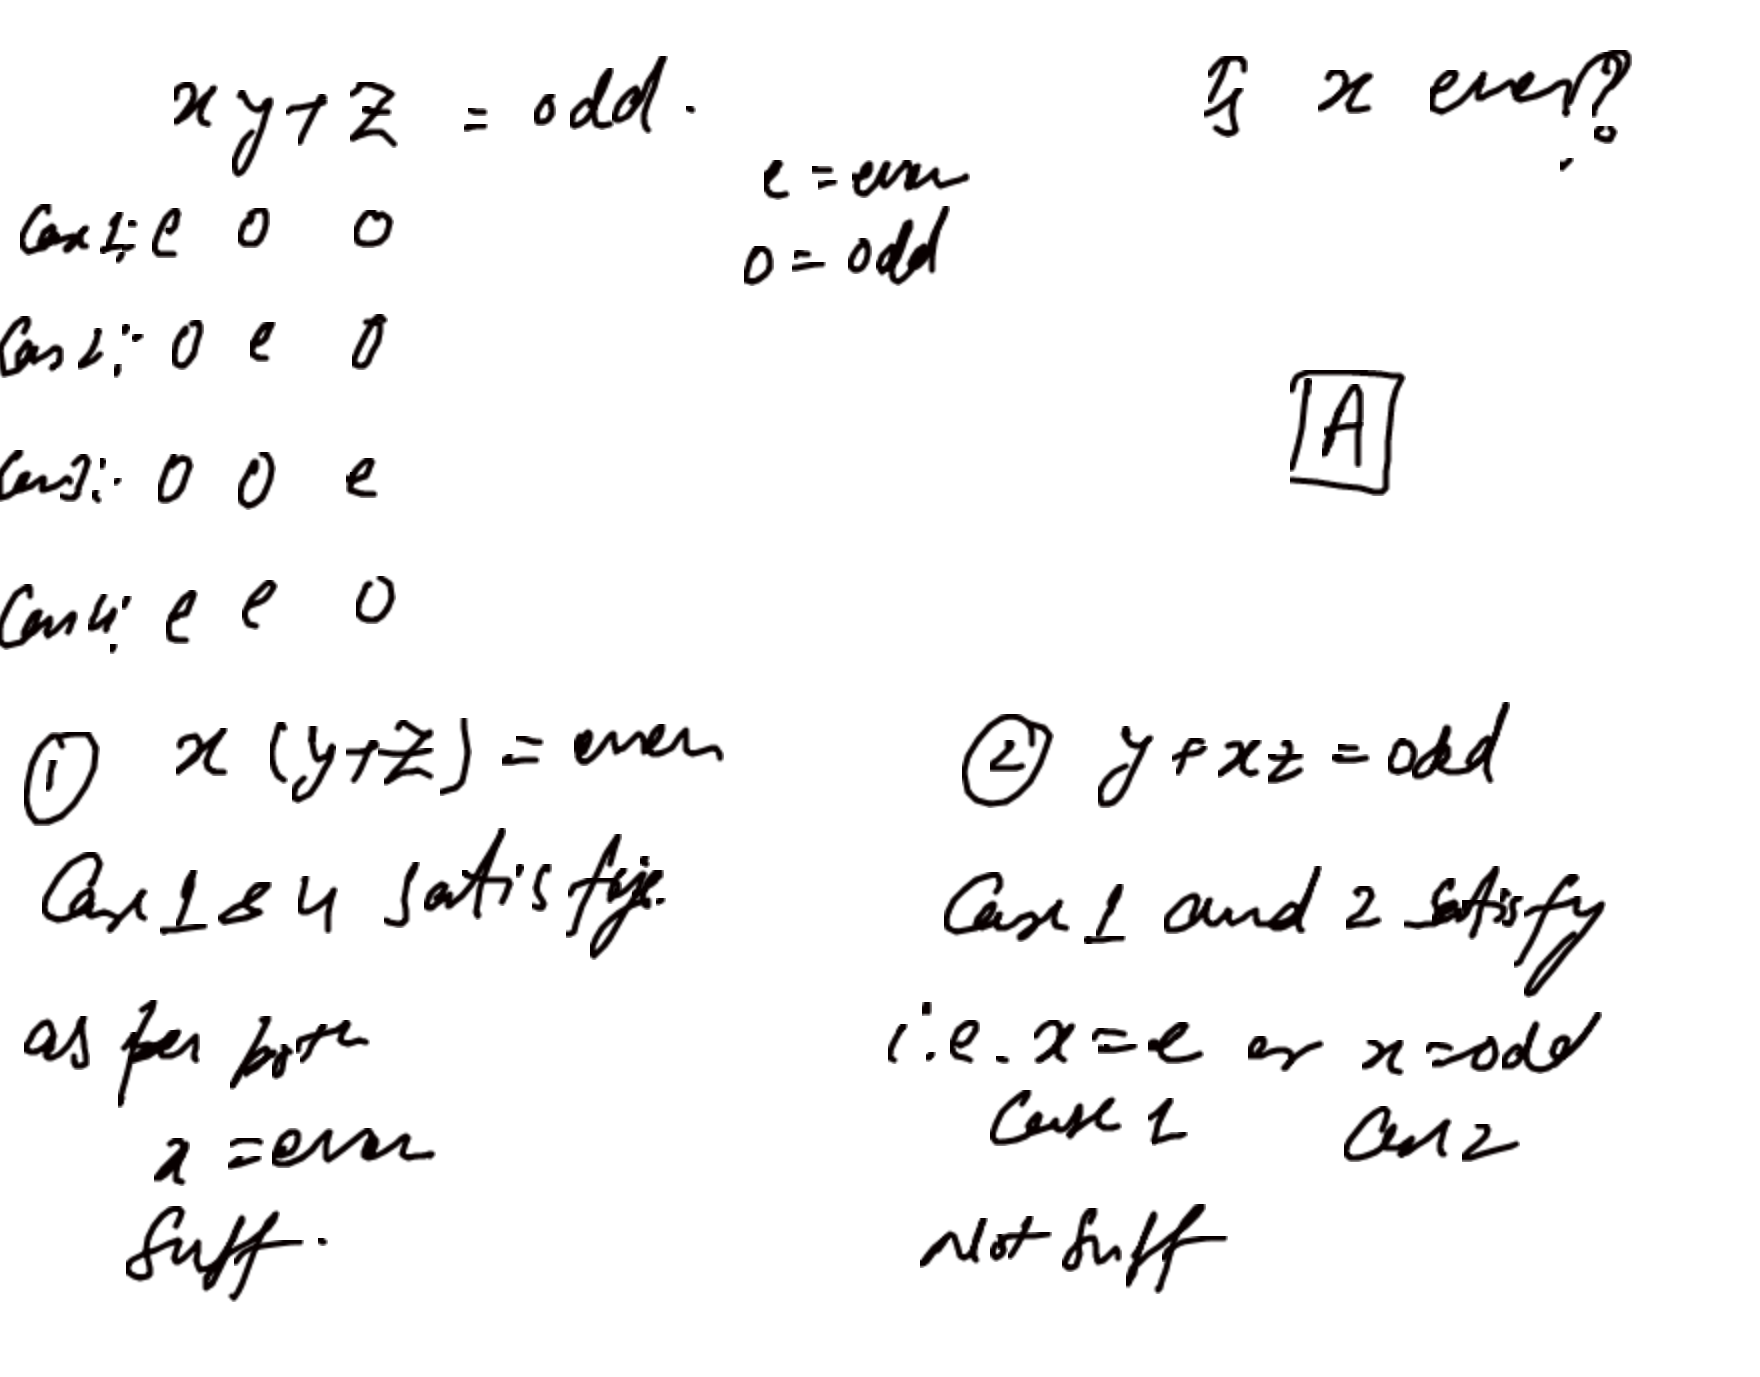 xy+z = odd.
Is x even?
e = even
o = odd
Case 1: e o o
Case 2:- o e o
Case 3:- o o e
Case 4: e e o
A
① x (y+z) = even
Case 1 & 4 satisfy.
as per both
x = even
Suff.
② y + xz = odd
Case 1 and 2 satisfy
i.e. x = e or x = odd
Case 1 Case 2
Not Suff